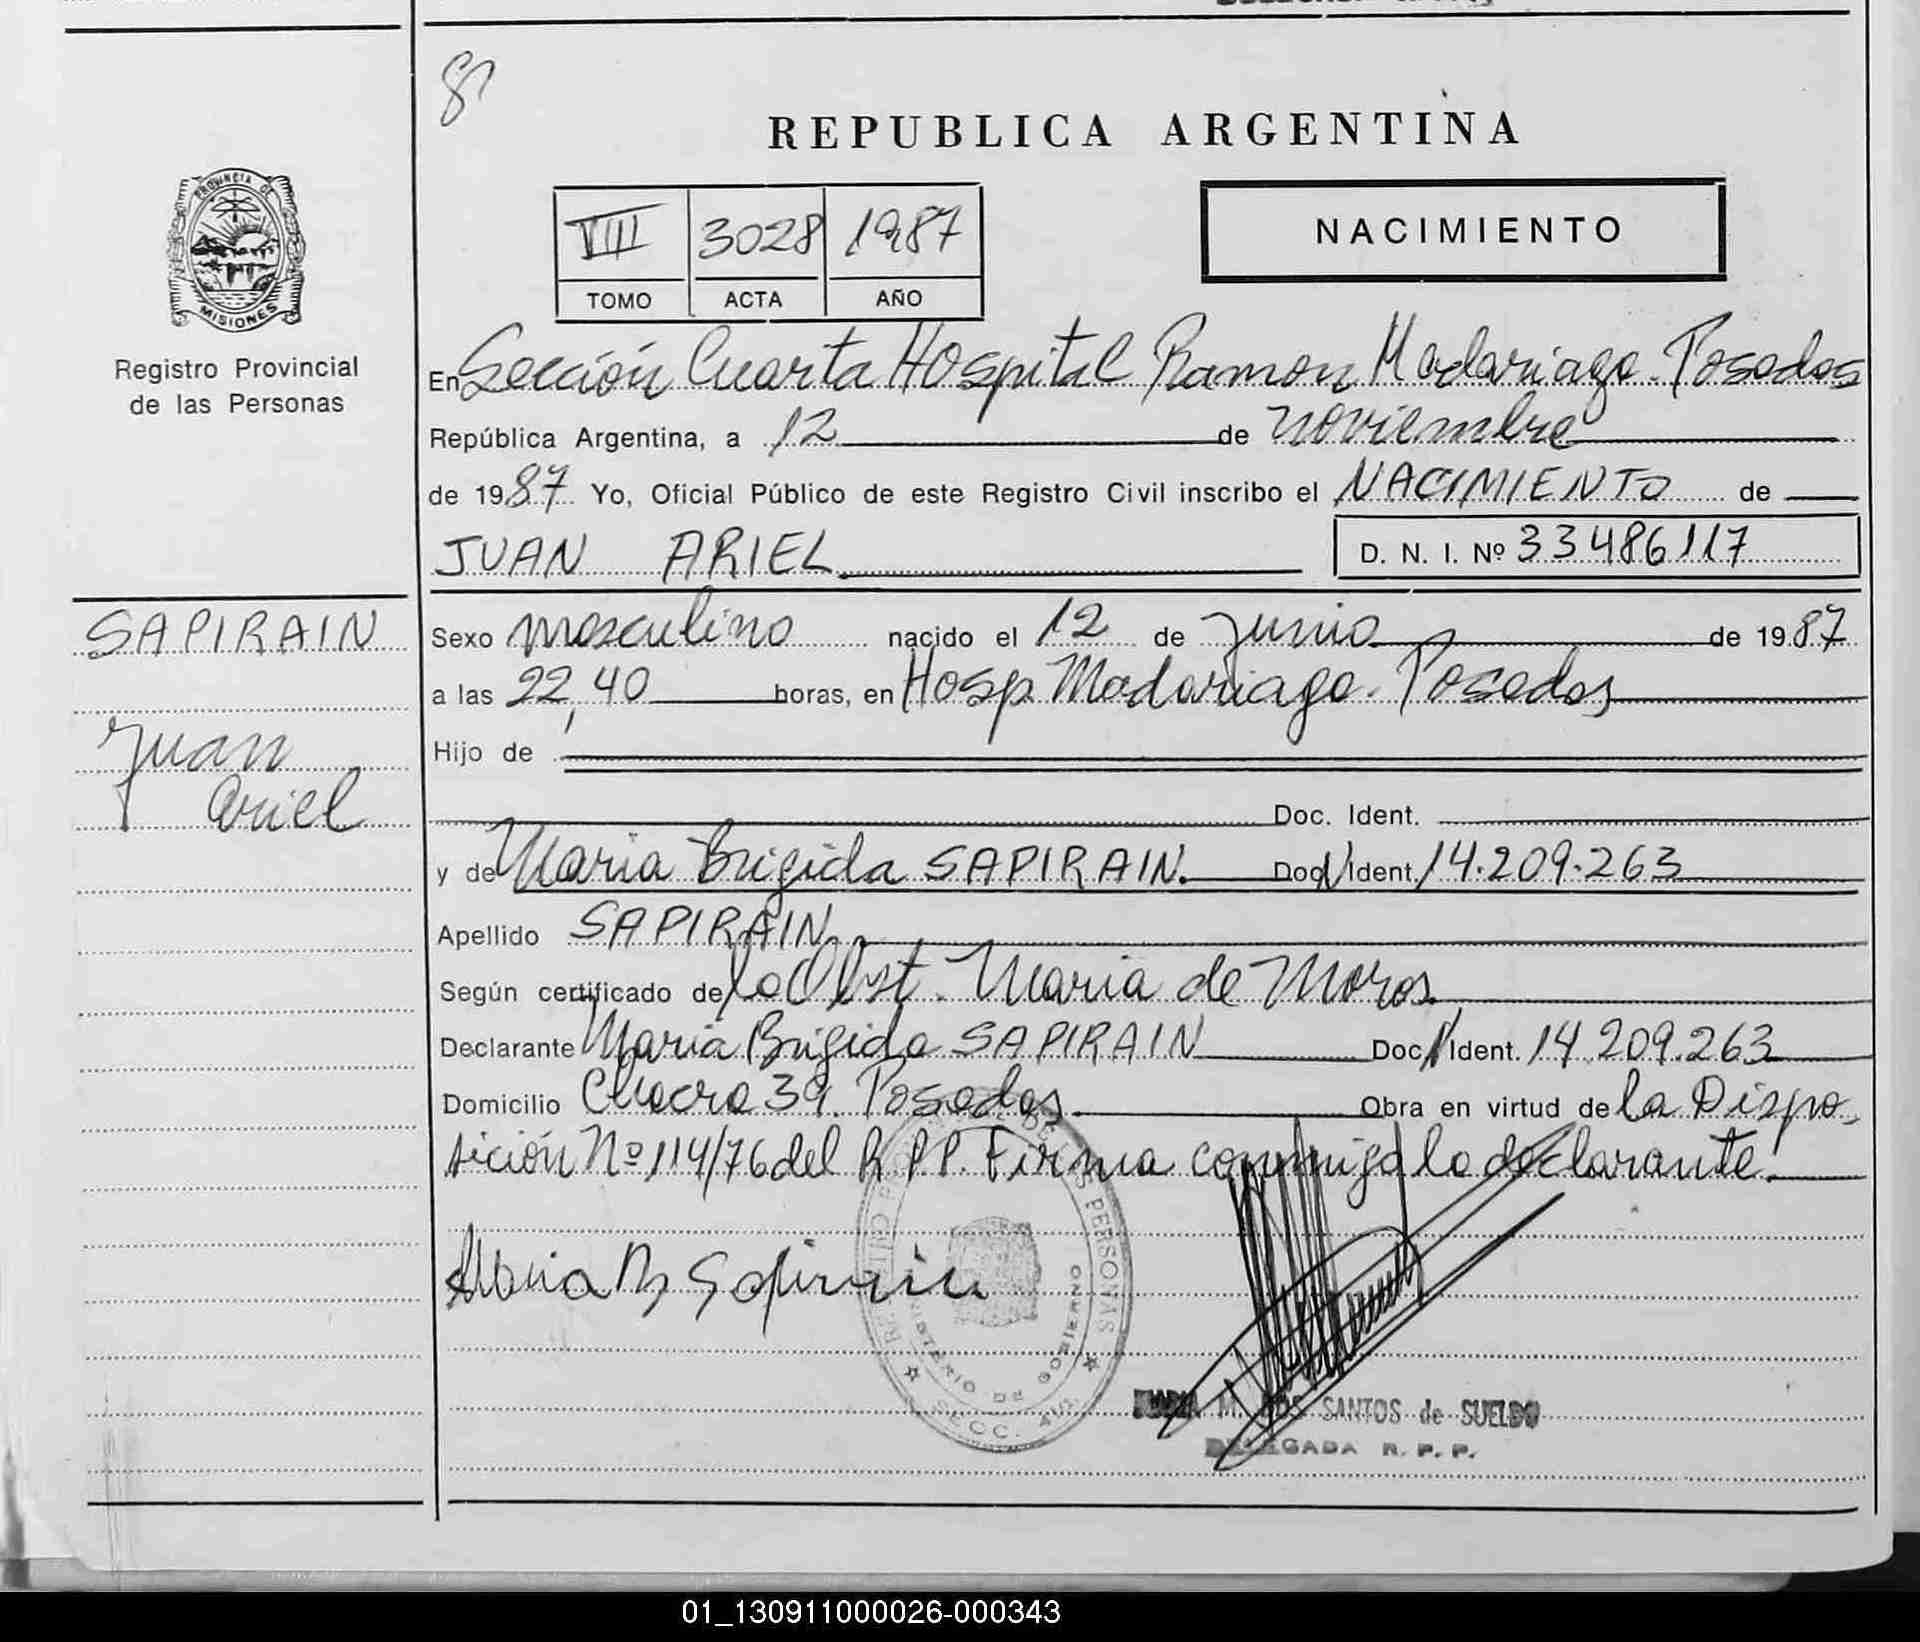 8
REPUBLICA ARGENTINA
PROVINCIA DE
MISIONES
Registro Provincial
de las Personas
VIII 3028 1987
TOMO ACTA AÑO
NACIMIENTO
En Sección Cuarta Hospital Ramon Madariaga. Posadas
República Argentina, a 12 de noviembre
de 1987 Yo, Oficial Público de este Registro Civil inscribo el NACIMIENTO de
JUAN ARIEL D. N. I. Nº 33486117
SAPIRAIN
Juan
Ariel
Sexo masculino nacido el 12 de junio de 1987
a las 22,40 horas, en Hosp. Madariaga. Posadas
Hijo de
Doc. Ident.
y de Maria Brigida SAPIRAIN. Doc. Ident. 14.209.263
Apellido SAPIRAIN
Según certificado de la Obst. Maria de Moros
Declarante Maria Brigida SAPIRAIN Doc. Ident. 14.209.263
Domicilio Chacra 39. Posadas. Obra en virtud de la Dispo
sición Nº 114/76 del R.P.P. Firma conmigo la declarante.
Maria B Sapirain
DE LAS PERSONAS
MINISTERIO DE GOBIERNO
SECC. 4ta
MARIA M. DOS SANTOS de SUELDO
DELEGADA R. P. P.
01_130911000026-000343